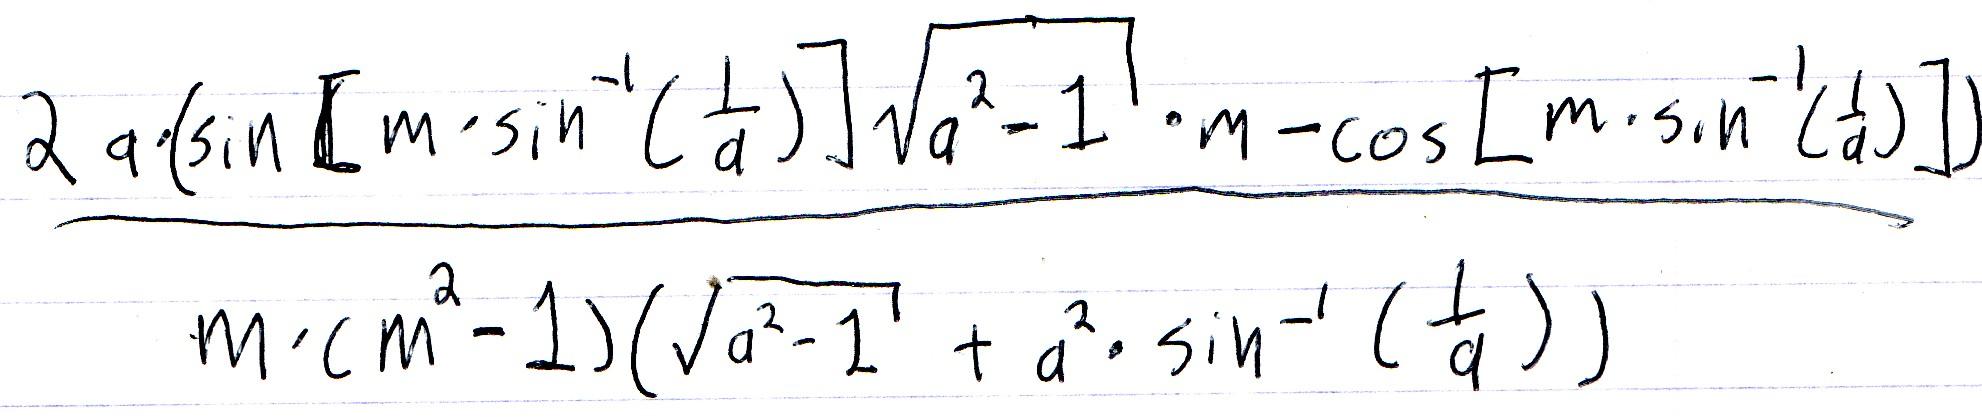 2a·(sin[m·sin⁻¹(1/a)]√(a²-1)·m-cos[m·sin⁻¹(1/a)])
m·(m²-1)(√(a²-1)+a²·sin⁻¹(1/a))